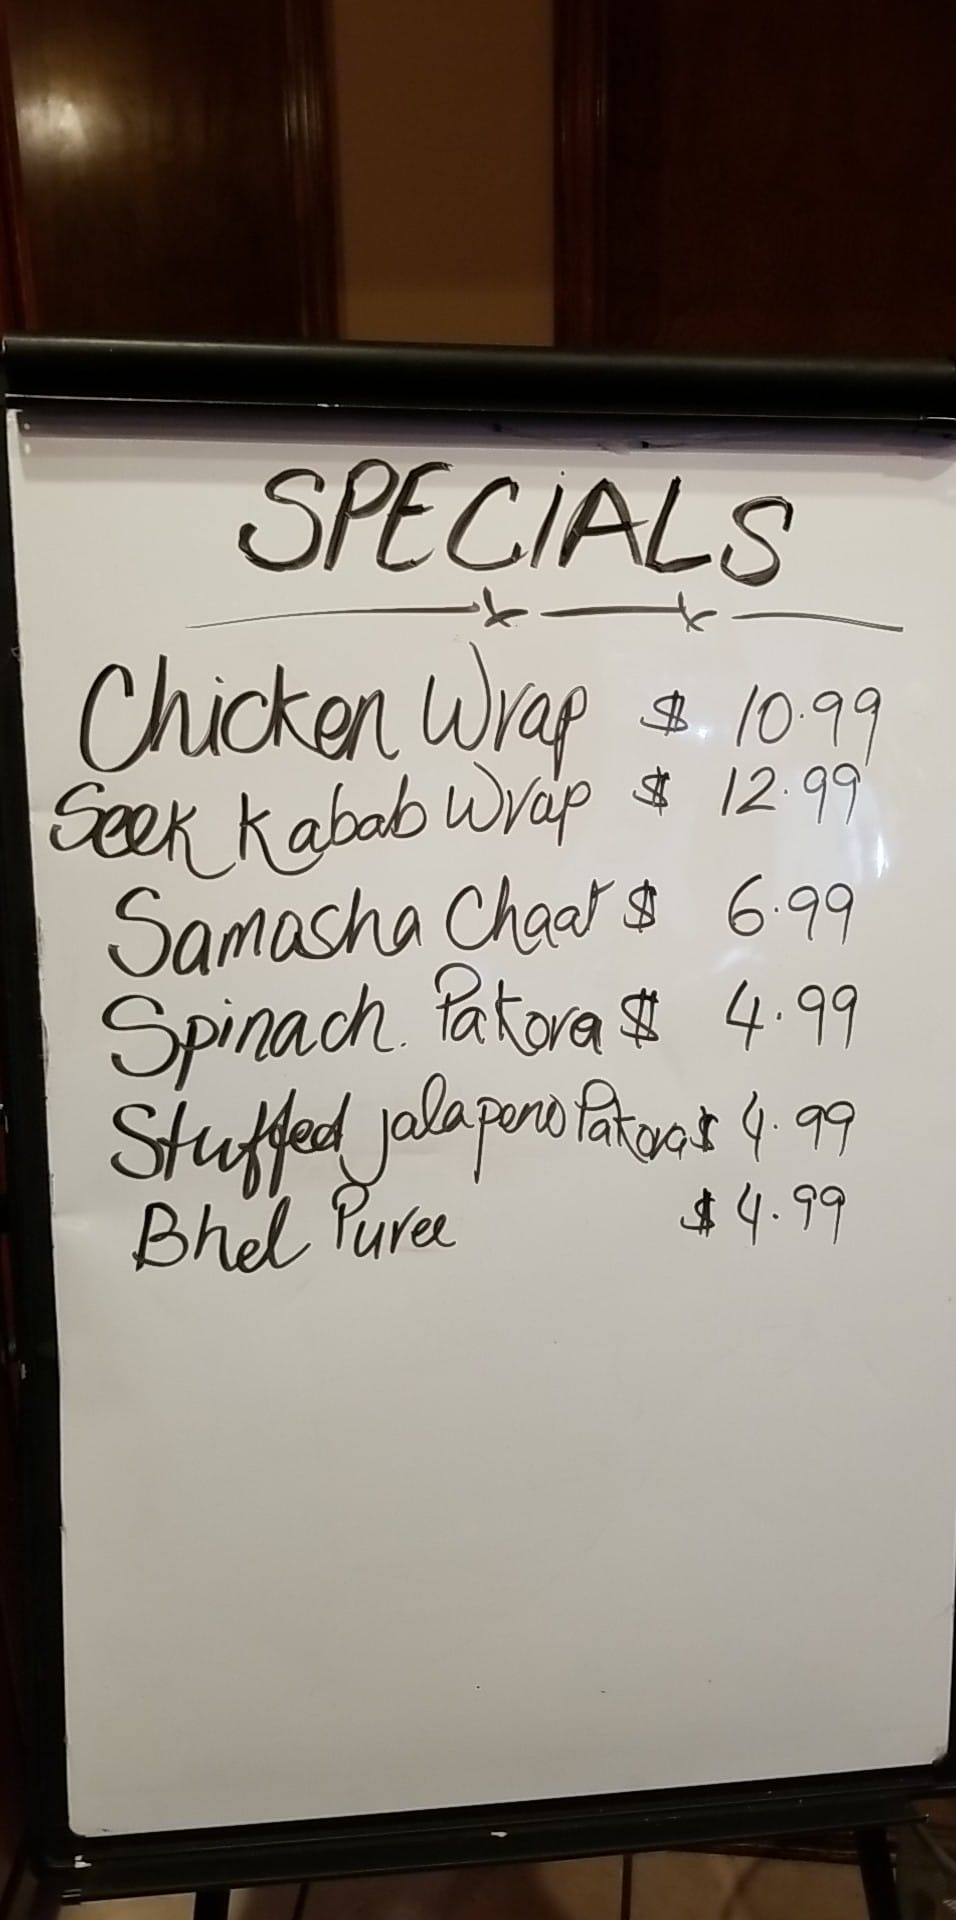 SPECiALS
Chicken Wrap $ 10.99
Seek Kabab Wrap $ 12.99
Samasha Chaat $ 6.99
Spinach. Pakora $ 4.99
Stuffed jalapeno Pakora $ 4.99
Bhel Puree $ 4.99